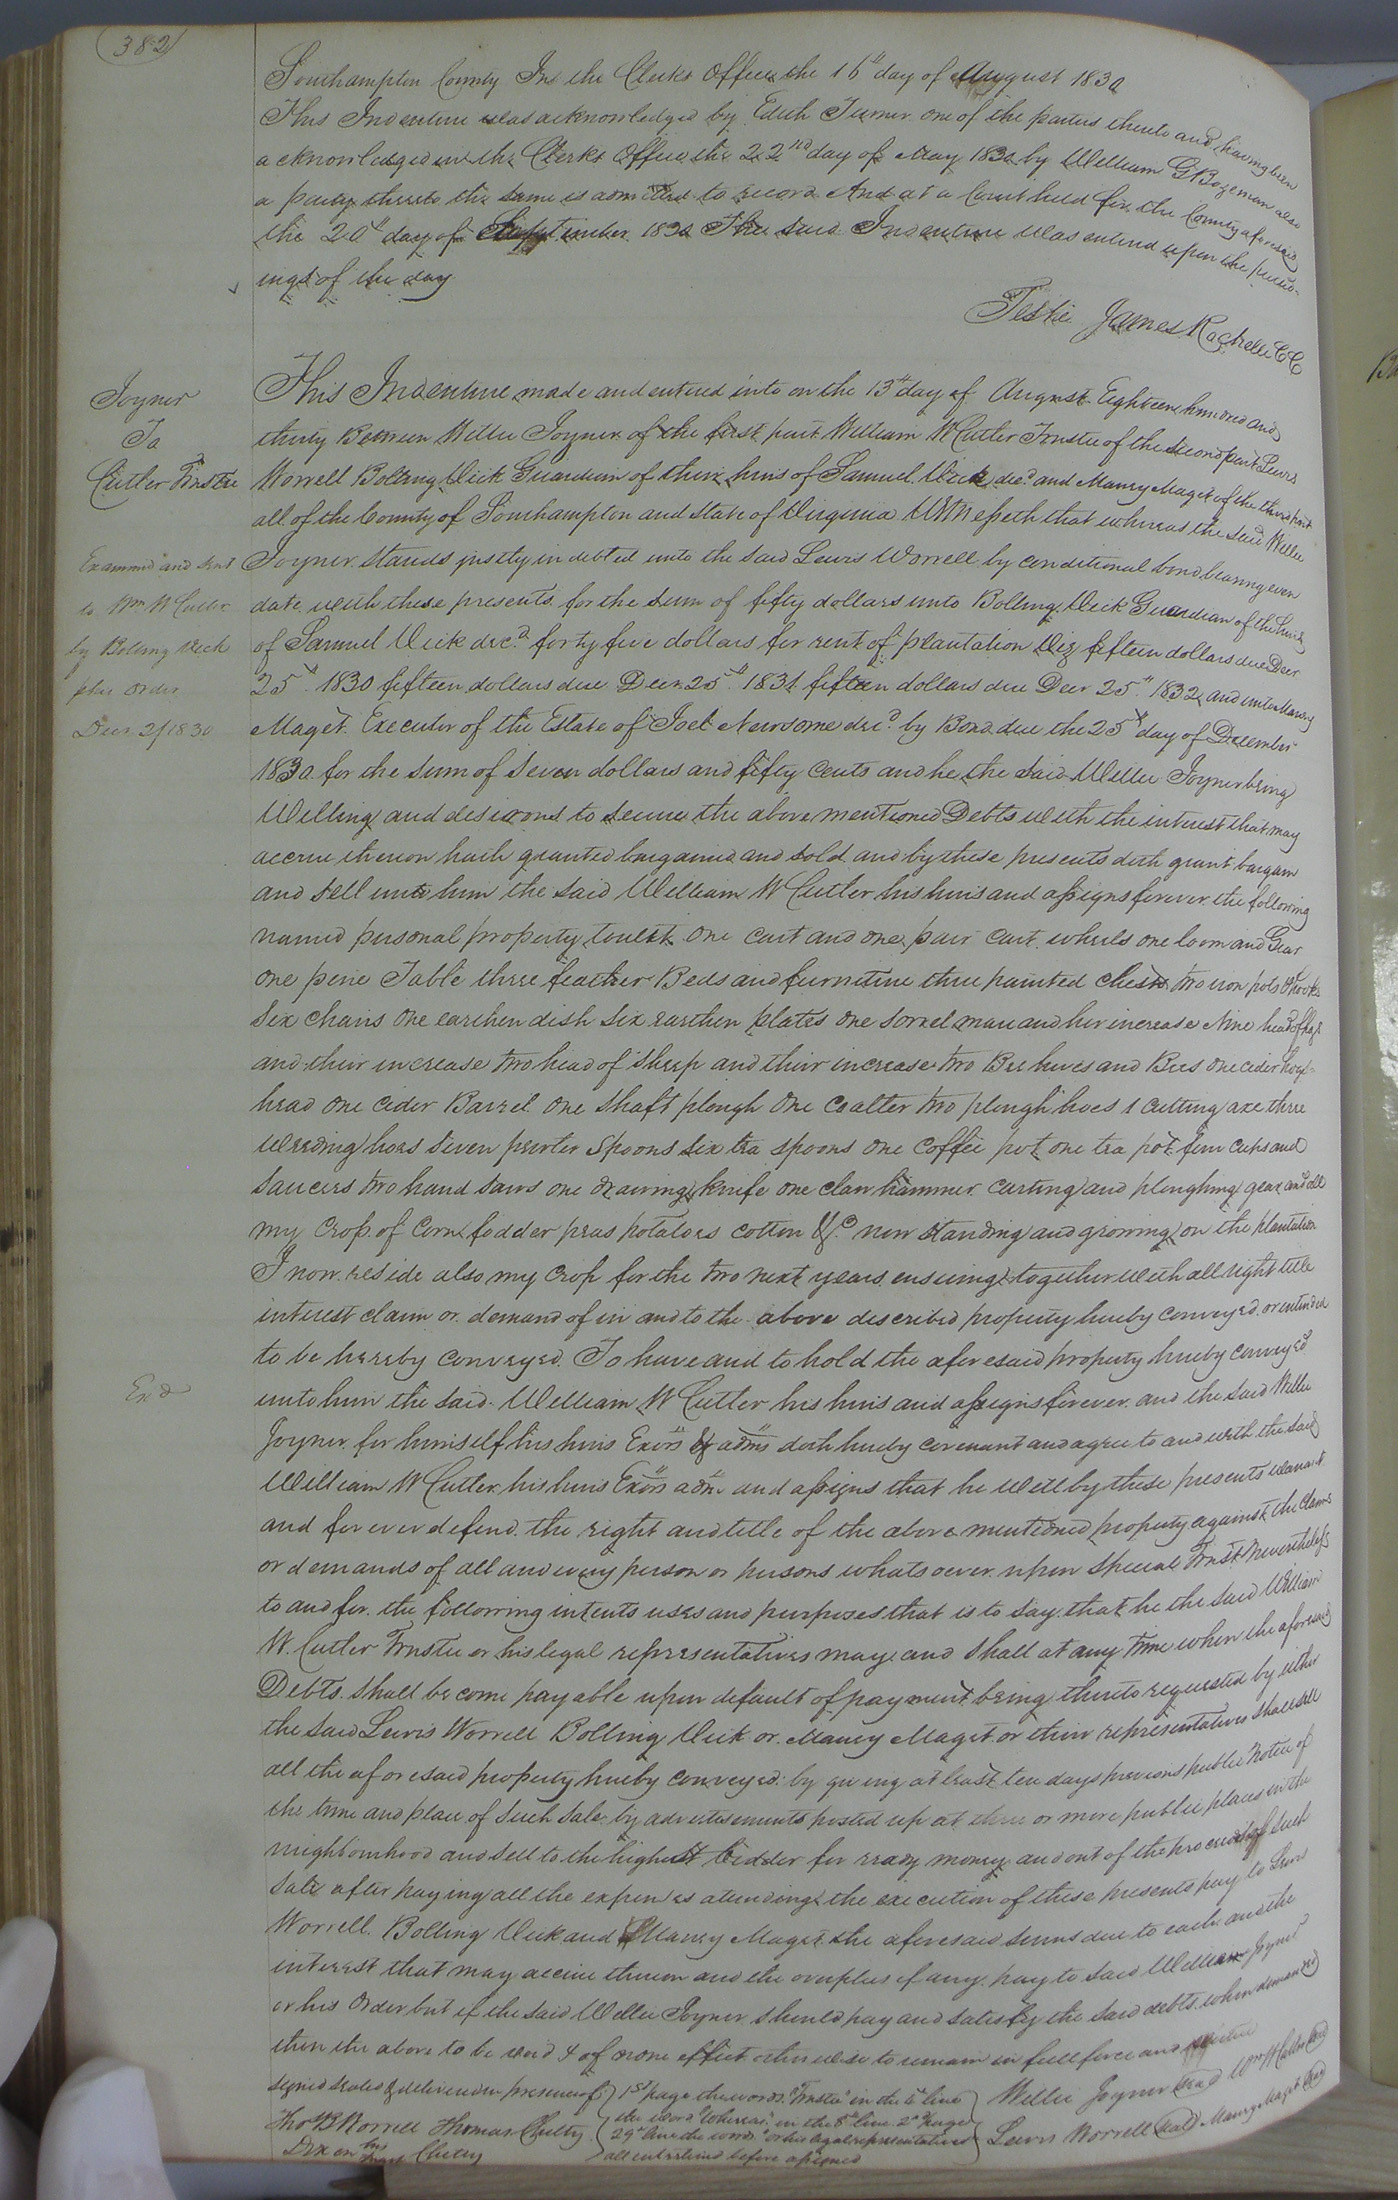 382
Southampton County In the Clerks Office the 16th day of August 1830
This Indenture was acknowledged by Edith Turner one of the parties thereto and having been
acknowledged in the Clerks Office the 22nd day of May 1830 by William G Bozeman also
a party thereto the same is admitted to record And at a Court held for the County aforesaid
the 20th day of September 1830 The said Indenture was entered upon the proceed-
ings of the day
Teste James Rochelle CC
Joyner
To
Cutler Trustee
Examined and sent
to Wm W Cutler
by Bolling Vick
pher order
Decr 2/1830
This Indenture made and entered into on the 13th day of August Eighteen hundred and
thirty Between Willie Joyner of the first part William W Cutler Trustee of the second part Lewis
Worrell Bolling Vick Guardian of their heirs of Samuel Vick decd and Manry Maget of the third part
all of the County of Southampton and State of Virginia Witnesseth that whereas the said Willie
Joyner stands justly indebted unto the said Lewis Worrell by conditional bond bearing even
date with these presents for the sum of fifty dollars unto Bolling Vick Guardian of the heirs
of Samuel Vick decd forty five dollars for rent of plantation Viz fifteen dollars due Decr
25th 1830 fifteen dollars due Decr 25th 1831 fifteen dollars due Decr 25th 1832 and unto Manry
Maget Executor of the Estate of Joel Newsome decd by Bond due the 25th day of December
1830 for the sum of seven dollars and fifty cents and he the said Willie Joyner being
Willing and desirous to secure the above mentioned Debts with the interest that may
accrue thereon hath granted bargained and sold and by these presents doth grant bargain
and sell unto him the said William W Cutler his heirs and assigns forever the following
named personal property towit one cart and one pair cart wheels one loom and Gear
one pine Table three feather Beds and furniture three painted chests two iron pots & hooks
six chairs one earthen dish six earthen plates one sorrel mare and her increase Nine head of hogs
and their increase two head of sheep and their increase two Bee hives and Bees one cider hogs-
head one cider Barrel one shaft plough one coalter two plough hoes 1 cutting axe three
weeding hoes seven pewter spoons six tea spoons one coffee pot one tea pot few cups and
saucers two hand saws one drawing knife one claw hammer carting and ploughing gear and all
my Crop of Corn fodder peas potatoes cotton &c now standing and growing on the plantation
I now reside also my crop for the two next years ensuing together with all right title
interest claim or demand of in and to the above described property hereby conveyed or intended
to be hereby conveyed To have and to hold the aforesaid property hereby conveyed
Exd
unto him the said William W Cutler his heirs and assigns forever and the said Willie
Joyner for himself his heirs Exors & adms doth hereby covenant and agree to and with the said
William W Cutler his heirs Exors adm and assigns that he will by these presents warrant
and forever defend the right and title of the above mentioned property against the claims
or demands of all and every person or persons whatsoever upon special Trust nevertheless
to and for the following intents uses and purposes that is to say that he the said William
W. Cutler Trustee or his legal representatives may and shall at any time when the aforesaid
Debts shall become payable upon default of payment being thereto requested by either
the said Lewis Worrell Bolling Vick or Manry Maget or their representatives shall sell
all the aforesaid property hereby conveyed by giving at least ten days previous public notice of
the time and place of such sale by advertisements posted up at three or more public places in the
neighbourhood and sell to the highest bidder for ready money and out of the proceeds of such
sale after paying all the expenses attending the execution of these presents pay to Lewis
Worrell Bolling Vick and Manry Maget the aforesaid sums due to each and the
interest that may accrue thereon and the overplus if any pay to said William Joyner
or his Order but if the said Willie Joyner should pay and satisfy the said debts when demanded
then the above to be void & of none effect otherwise to remain in full force and virtue
signed sealed & delivered in presence of
Tho B Worrell Thomas Clutly
Dixon Clutly
1st page the words "Trustee" in the 4th line
the word "Whereas" in the 8th line 2d Page
29th line the words "or his legal representatives
all interlined before assigned
Willie Joyner Seal Wm W Cutler Seal
Lewis Worrell Seal Manry Maget Seal